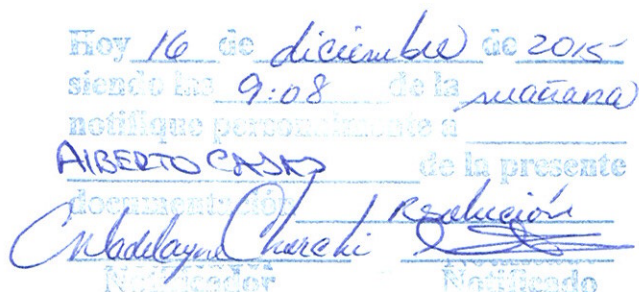 Hoy 16 de diciembre de 2015
siendo las 9:08 de la mañana
notifique personalmente a
AlBERTO CASAS de la presente
documentación Resolución
Notificador Notificado